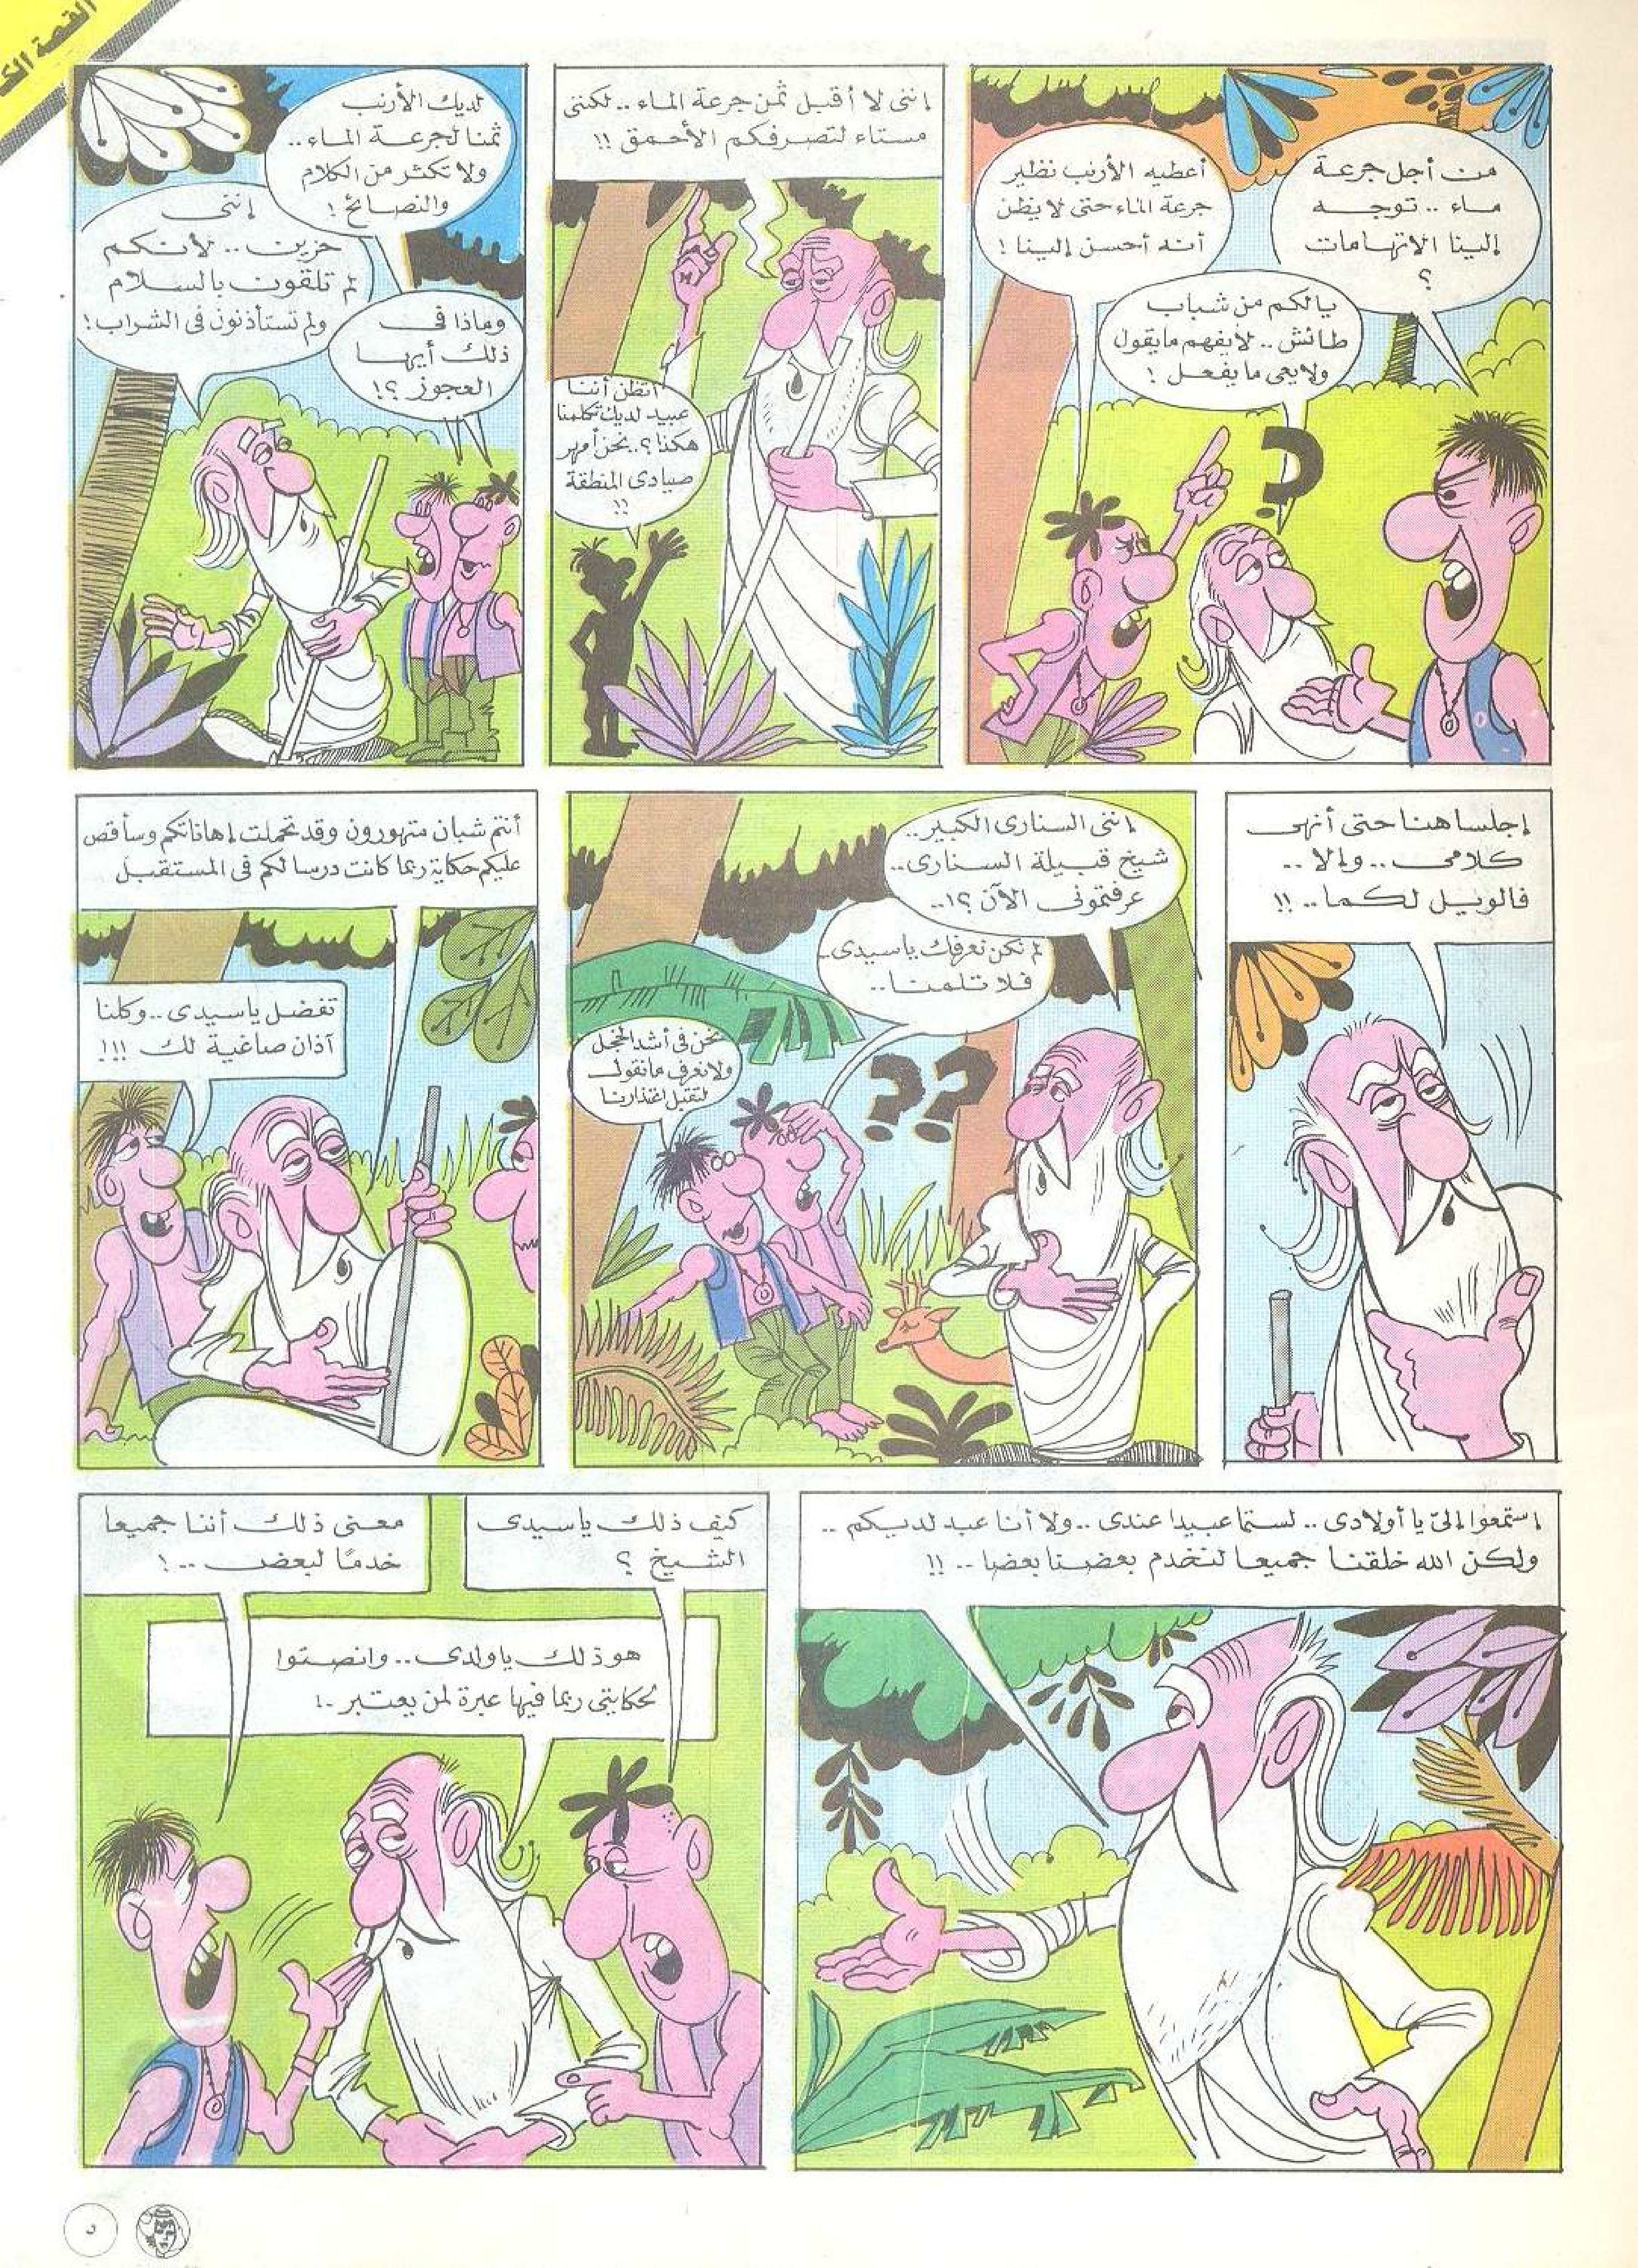 القصة
من أجل جرعة
ماء .. توجه
إلينا الاتهامات
؟
يالكم من شباب
طائش .. لايفهم مايقول
ولايعى ما يفعل !
أعطيه الأرنب نظير
جرعة الماء حتى لا يظن
أنه أحسن إلينا !
إننى لا أقبل ثمن جرعة الماء .. لكننى
مستاء لتصرفكم الأحمق !!
أتظن أننا
عبيد لديك تكلمنا
هكذا ؟.. نحن أمهر
صيادى المنطقة
!!
لديك الأرنب
ثمنا لجرعة الماء ..
ولا تكثر من الكلام
والنصائح !
إننى
حزين .. لأنكم
لم تلقون بالسلام
ولم تستأذنون فى الشراب !
وماذا فى
ذلك أيها
العجوز ؟!
إجلسا هنا حتى أنهى
كلامى .. وإلا ..
فالويل لكما .. !!
إننى السنارى الكبير ..
شيخ قبيلة السنارى ..
عرفتمونى الآن ؟! ..
لم نكن نعرفك ياسيدى ..
فلا تلمنا ..
نحن فى أشد الخجل
ولا نعرف ما نقول
لتقبل اعتذارنا
أنتم شبان متهورون وقد تحملت إهاناتكم وسأقص
عليكم حكاية ربما كانت درسا لكم فى المستقبل
تفضل ياسيدى .. وكلنا
آذان صاغية لك !!!
إستمعوا إلىّ يا أولادى .. لستما عبيدا عندى .. ولا أنا عبد لديكم ..
ولكن الله خلقنا جميعا لنخدم بعضنا بعضا .. !!
كيف ذلك ياسيدى
الشيخ ؟
معنى ذلك أننا جميعا
خدمًا لبعض .. !
هو ذلك ياولدى .. وانصتوا
لحكايتى ربما فيها عبرة لمن يعتبر .. !
٥